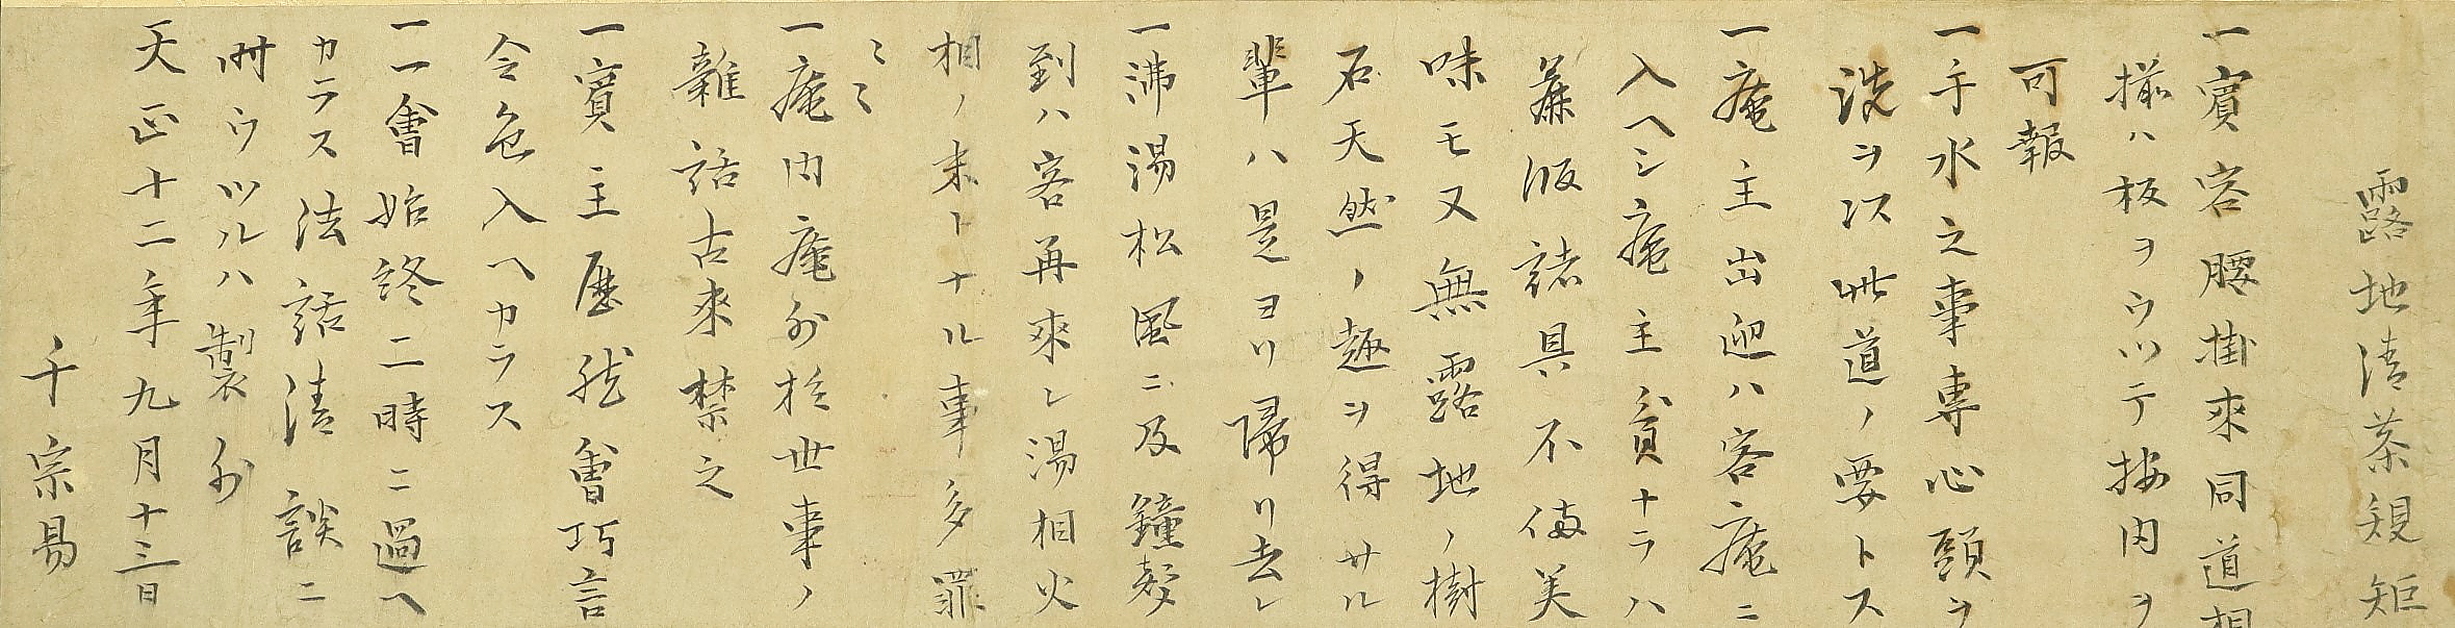 露地清茶規矩
一賓客腰掛來同道相
揃ハ板ヲウツテ按内ヲ
可報
一手水之事専心頭ヲ
洗ヲ以此道ノ要トス
一庵主出迎ハ客庵ニ
入ヘシ庵主貧ナラハ
茶飯諸具不備美
味モ又無露地ノ樹
石天然ノ趣ヲ得サル
輩ハ是ヨリ帰リ去レ
一沸湯松風ニ及鐘聲
到ハ客再來レ湯相火
相ノ末トナル事多罪
〻〻
一庵内庵外於世事ノ
雜話古来禁之
一賓主歴然會巧言
令色入ヘカラス
一一會始終二時ニ過ヘ
カラス法話清談ニ
時ウツルハ製外
天正十二年九月十三日
千宗易